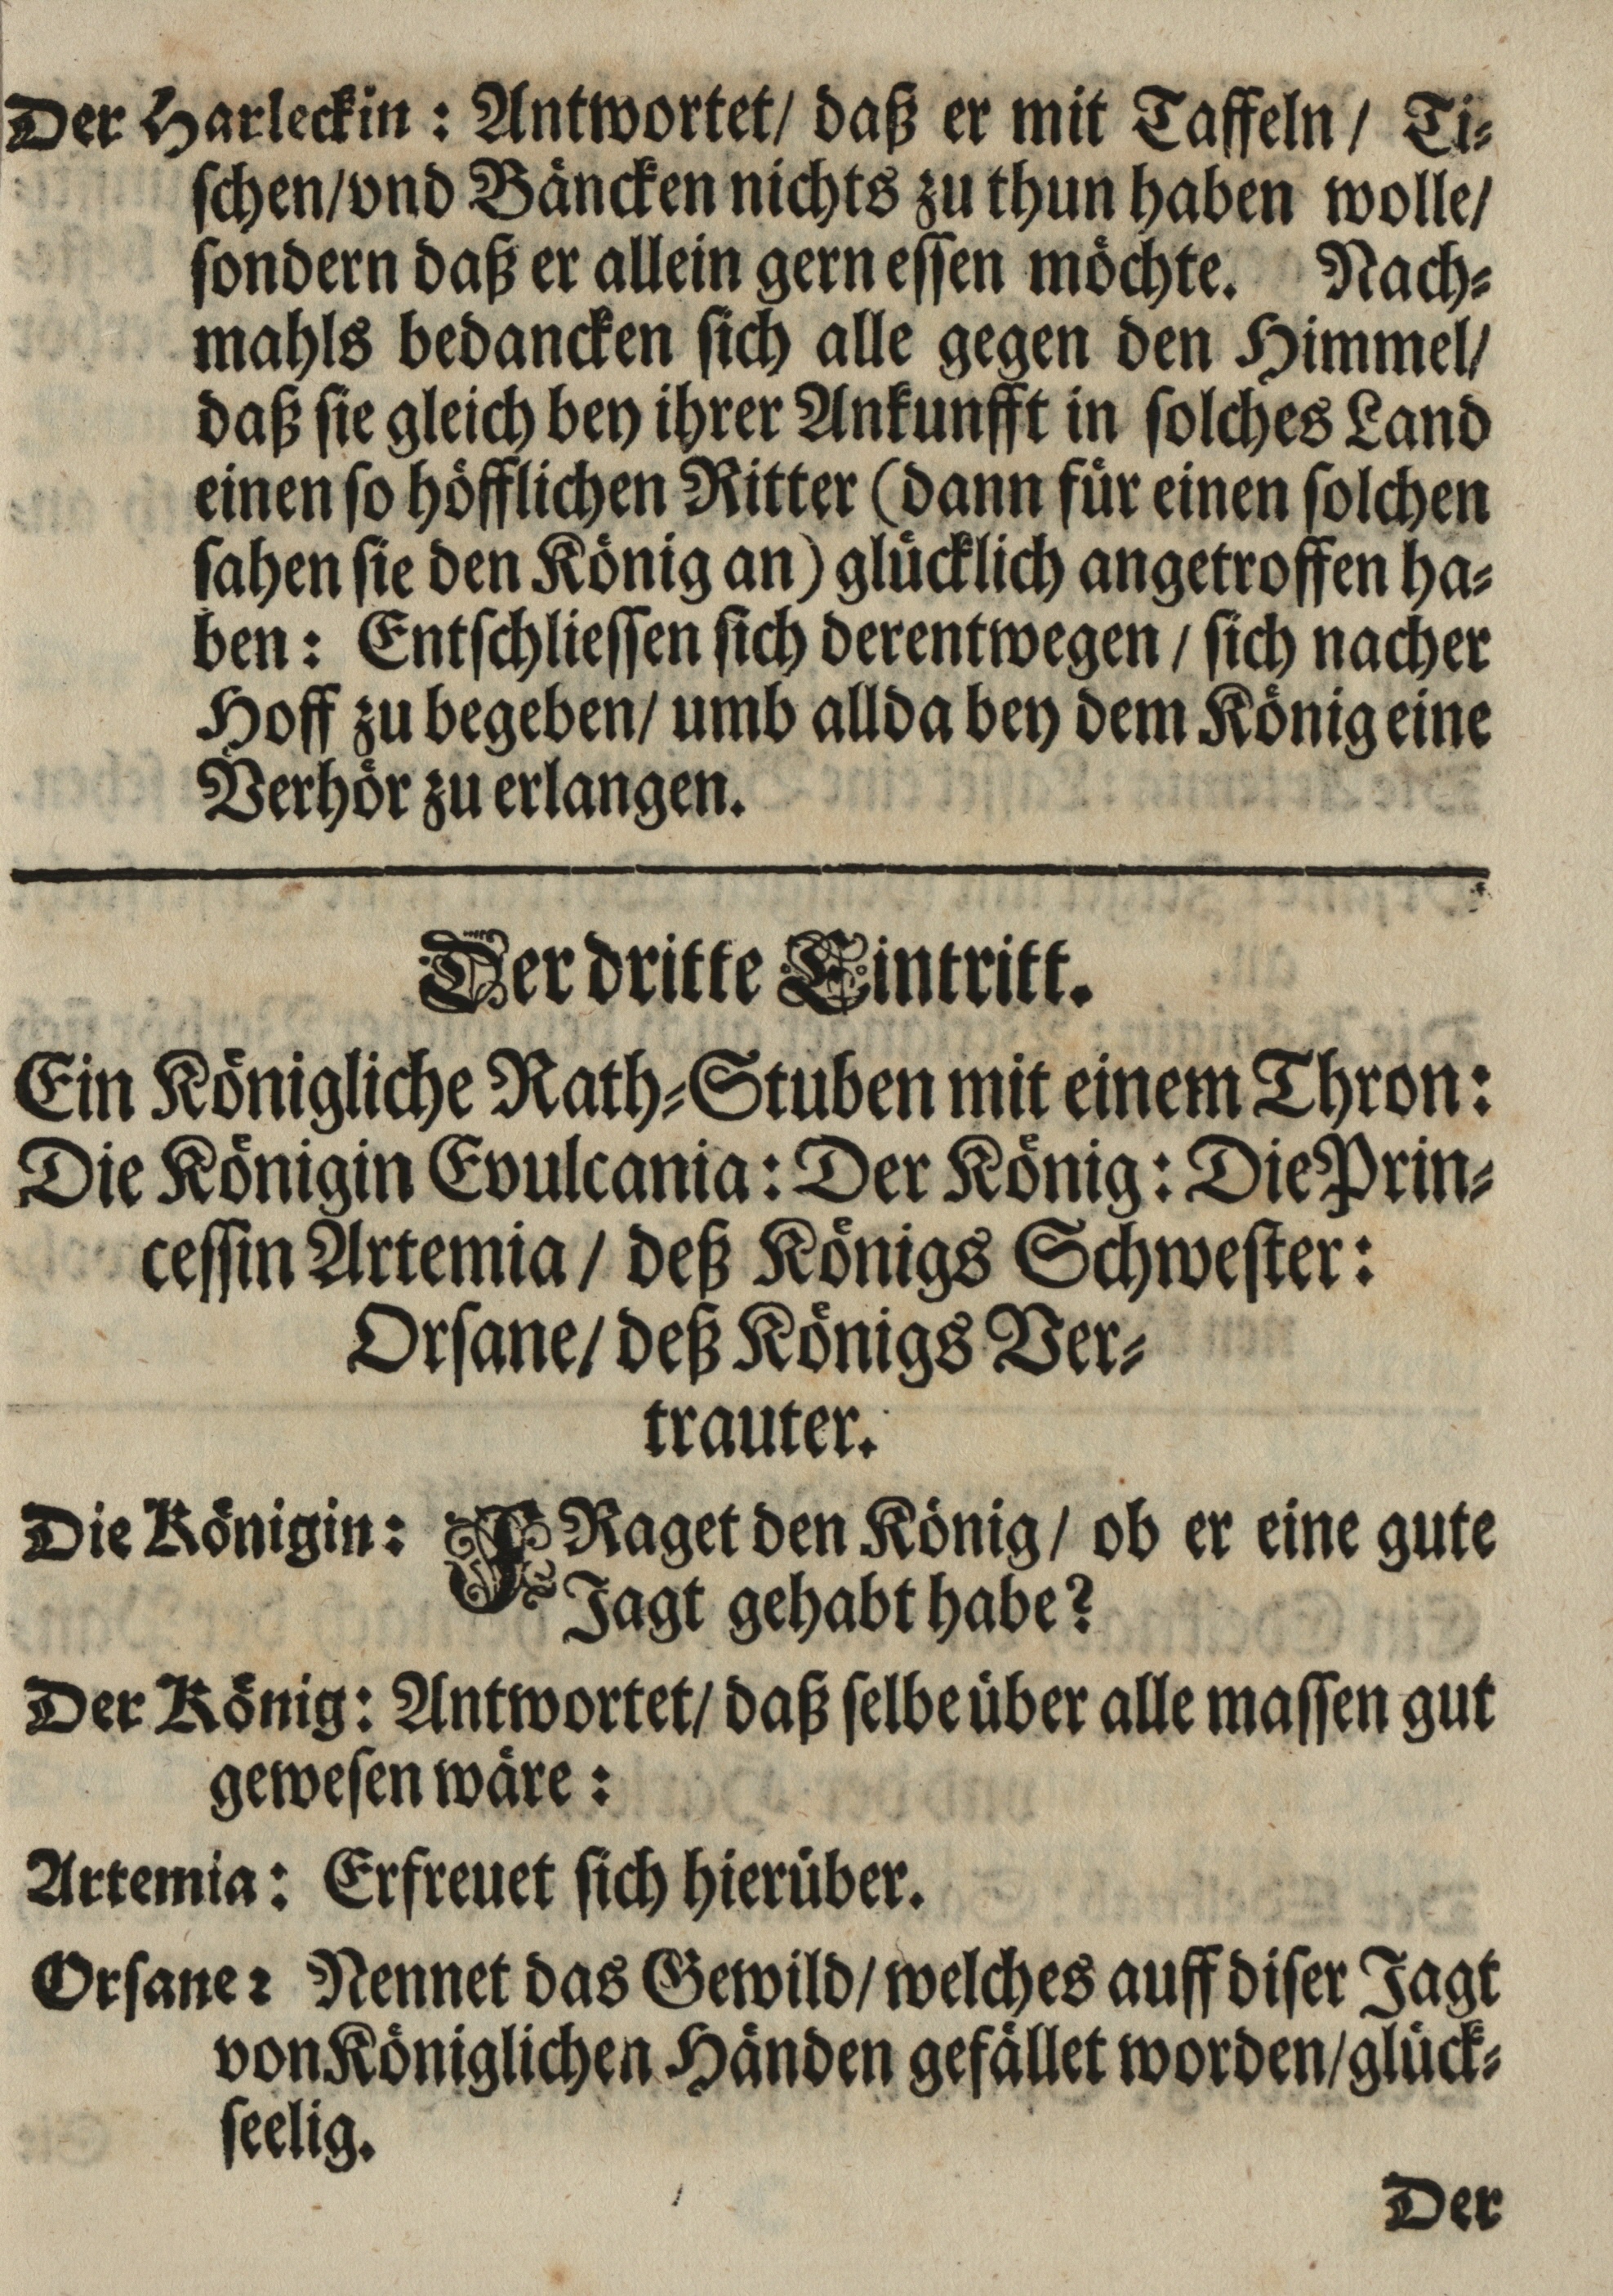 Der Harleckin : Antwortet/ daß er mit Taffeln / Ti-
schen/vnd Bäncken nichts zu thun haben wolle/
sondern daß er allein gern essen möchte. Nach-
mahls bedancken sich alle gegen den Himmel/
daß sie gleich bey ihrer Ankunfft in solches Land
einen so höfflichen Ritter (dann für einen solchen
sahen sie den König an) glücklich angetroffen ha-
ben : Entschliessen sich derentwegen / sich nacher
Hoff zu begeben/ umb allda bey dem König eine
Verhör zu erlangen.
Der dritte Eintritt.
Ein Königliche Rath-Stuben mit einem Thron:
Die Königin Evulcania : Der König : Die Prin-
cessin Artemia / deß Königs Schwester :
Orsane/ deß Königs Ver-
trauter.
Die Königin : FRaget den König/ ob er eine gute
Jagt gehabt habe?
Der König : Antwortet/ daß selbe über alle massen gut
gewesen wäre :
Artemia : Erfreuet sich hierüber.
Orsane : Nennet das Gewild/ welches auff diser Jagt
von Königlichen Händen gefället worden/ glück-
seelig.
Der